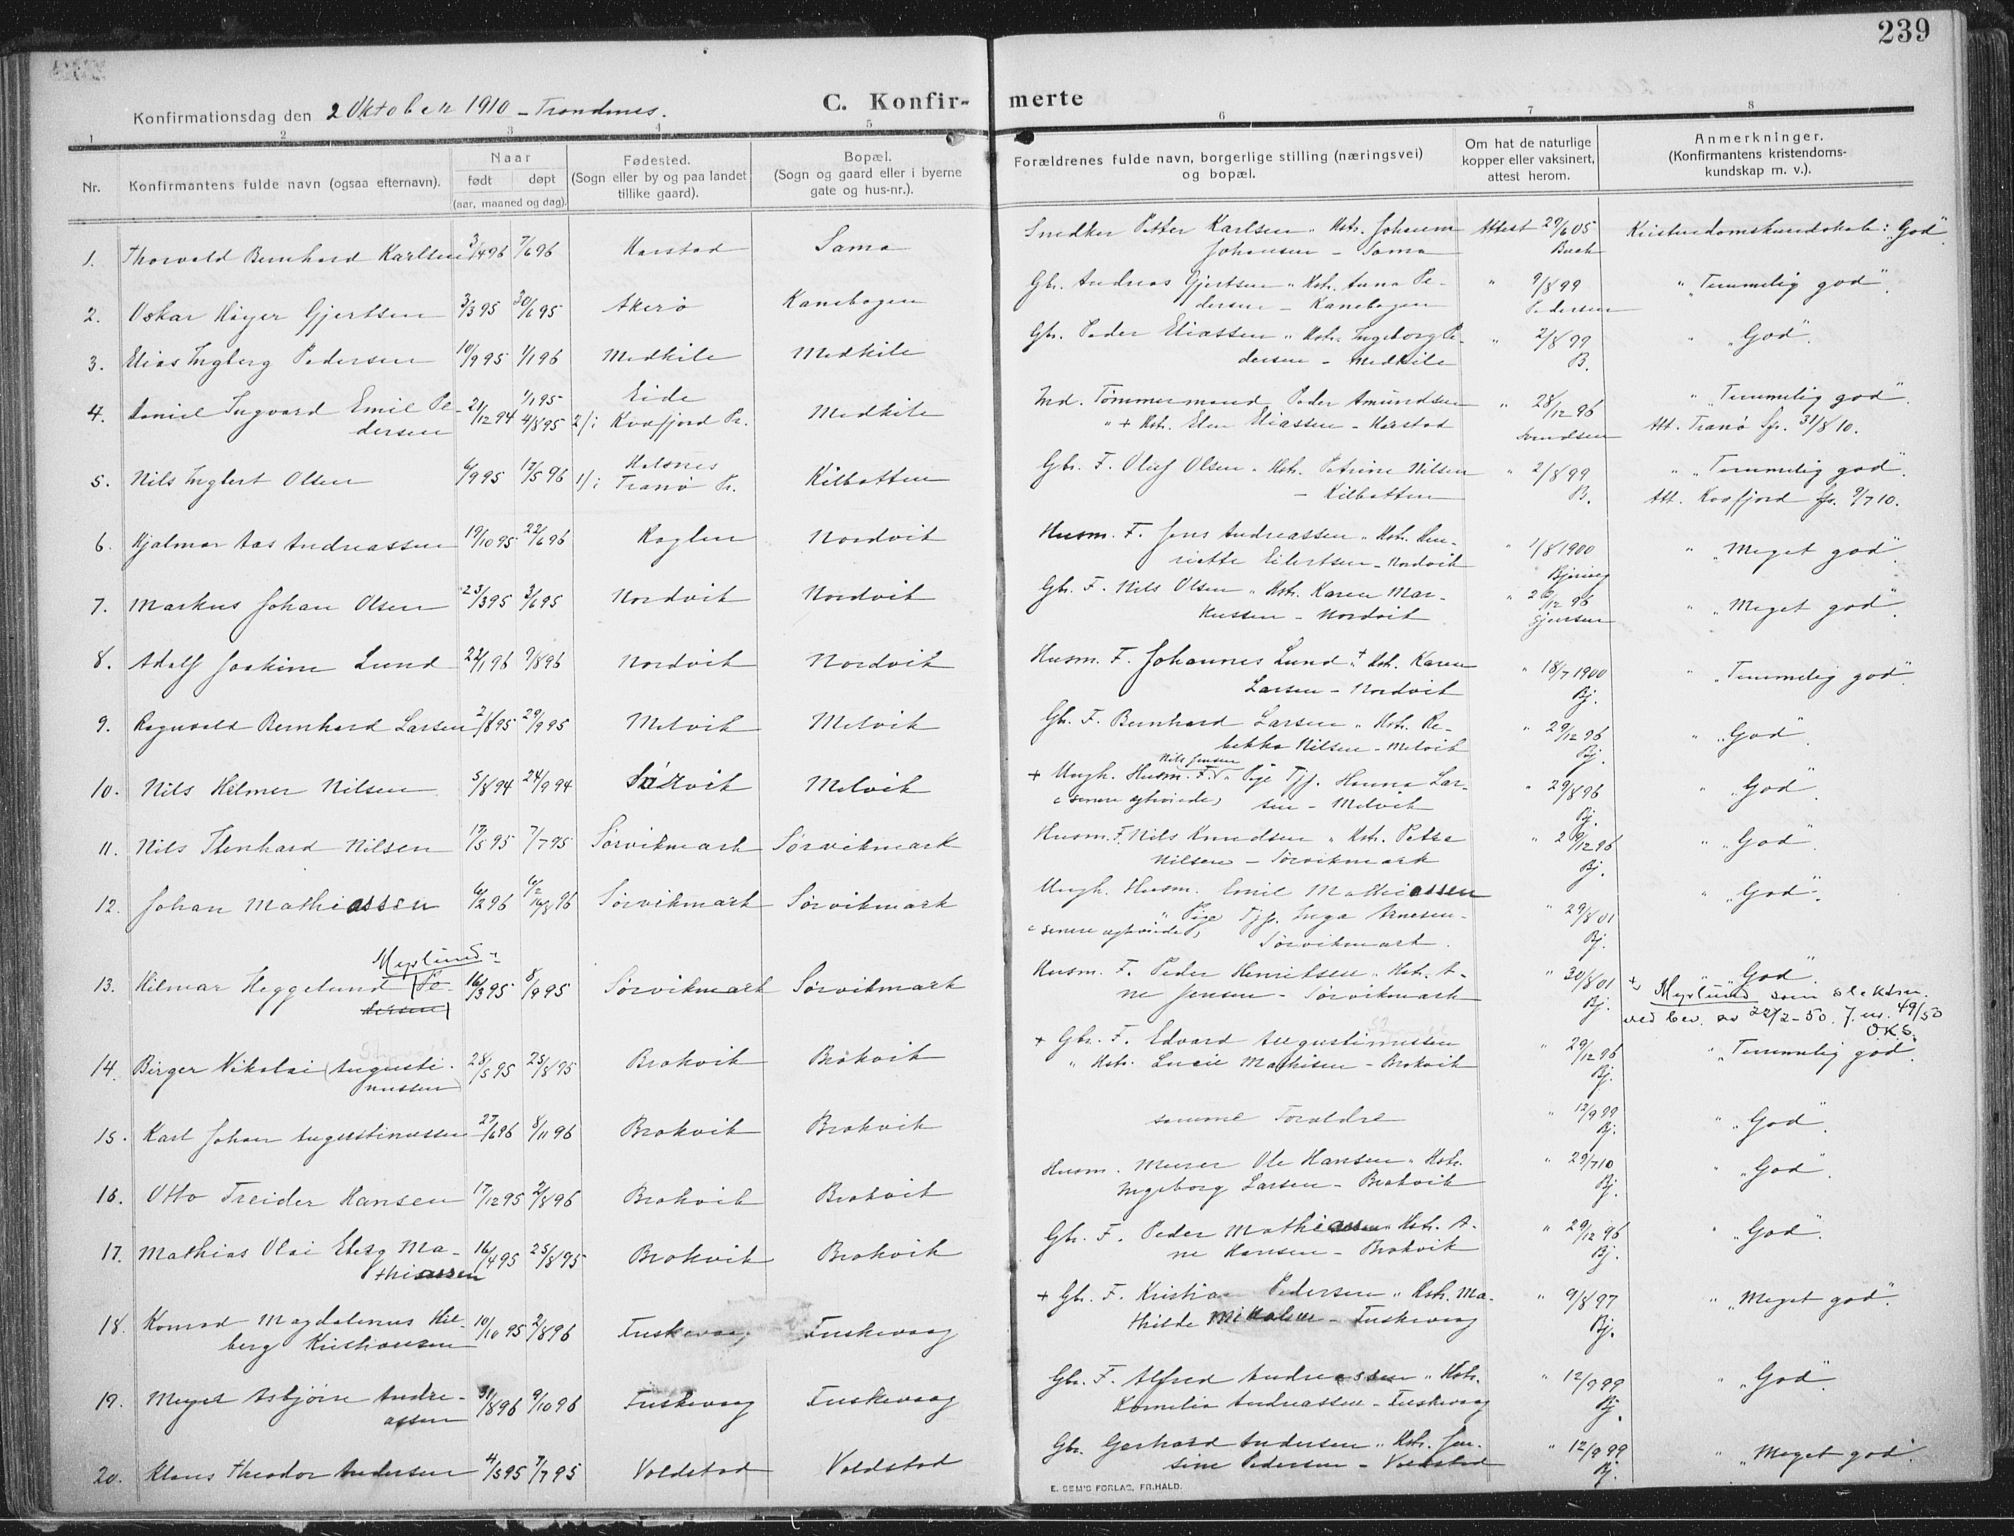 239
Konfirmationsdag den 2 Oktober 1910 - Trondenes.
C. Konfir- merte
1 2 3 4 5 6 7 8
Nr.
Konfirmantens fulde navn (ogsaa efternavn).
Naar
født døpt
(aar, maaned og dag).
Fødested.
(Sogn eller by og paa landet
tillike gaard).
Bopæl.
(Sogn og gaard eller i byerne
gate og hus-nr.).
Forældrenes fulde navn, borgerlige stilling (næringsvei)
og bopæl.
Om hat de naturlige
kopper eller vaksinert,
attest herom.
Anmerkninger.
(Konfirmantens kristendoms-
kundskap m. v.).
1. Thorvald Bernhard Karlsen 3/4 96 7/6 96 Harstad Sama Snedker Petter Karlsen " Hstr. Johanna Attest 29/6 05 Kristendomskundskab: "God".
Johansen - Sama Buch
2. Oskar Høyer Gjertsen 3/3 95 30/6 95 Akerø Kanebogen Gbr. Andreas Gjertsen " Hstr. Anna Pe- " 9/8 99 " "Temmelig god".
dersen - Kanebogen Pedersen
3. Elias Ingberg Pedersen 10/9 95 1/1 96 Medkile Medkile Gbr. Peder Eliassen " Hstr. Ingeborg Pe- " 2/8 99 " "God".
dersen - Medkile B.
4. Daniel Ingvard Emil Pe- 21/12 94 1/1 95 Eide Medkile Ind. Tømmermand Peder Amundsen " 28/12 96 " "Temmelig god".
dersen 4/8 95 2/: Kvæfjord Pr. " + Hstr. Elen Eliassen - Harstad Svendsen Att. Tranø Spr. 31/8 10.
5. Nils Inglert Olsen 6/9 95 17/5 96 Kilbotten Gbr. F. Oluf Olsen " Hstr. Petrine Nilsen " 2/8 99 " "Temmelig god".
1/: Tranø Pr. - Kilbotten B. Att. Kvæfjord Spr. 9/7 10.
6. Hjalmar Aas Andreassen 19/10 95 22/6 96 Røglen Nordvik Husm. F. Jens Andreassen " Hstr. Hen- " 1/8 1900 " "Meget god".
riette Eilertsen - Nordvik
7. Markus Johan Olsen 23/3 95 3/6 95 Nordvik Nordvik Gbr. F. Nils Olsen " Hstr. Karen Mar- " 26/12 96 " "Meget god".
kussen - Nordvik
8. Adolf Joakim Lund 22/1 96 9/8 96 Nordvik Nordvik Husm. F. Johannes Lund " + Hstr. Karen " 18/7 1900 " "Temmelig god".
Larsen - Nordvik Bj.
9. Ragnvald Bernhard Larsen 2/8 95 29/9 95 Melvik Melvik Gbr. F. Bernhard Larsen " Hstr. Re- " 29/12 96 " "God".
bekka Nilsen - Melvik Bj.
10. Nils Hilmer Nilsen 5/8 94 24/9 94 Sørvik Melvik + Ungk. Husm. F. Nils Jensen " Pige Tjp. Hanna Lar- " 29/8 96 " "God".
(senere egtviede) sen - Melvik Bj.
11. Nils Stenhard Nilsen 17/5 95 7/7 95 Sørvikmark Sørvikmark Husm. F. Nils Knudsen " Hstr. Petra " 29/12 96 " "God".
Nilsen - Sørvikmark Bj.
12. Johan Mathiassen 6/2 96 6/2 16/8 96 Sørvikmark Sørvikmark Ungk. Husm. Emil Mathiassen " 29/8 01 " "God".
" Pige Tjp. Inga Arnesen -
(senere egtviede) Sørvikmark. Bj.
Myrlund
13. Hilmar Heggelund (Pe- 16/3 95 8/9 95 Sørvikmark Sørvikmark Husm. F. Peder Henriksen " Hstr. A- " 30/8 01 "God".
dersen) ne Jensen - Sørvikmark Bj. Myrlund som slektsn.
ved bev. av 22/2-50. J.nr. 49/50
O.K.S.
14. Birger Nikolai (Augusti- 28/5 95 25/8 95 Brokvik Brokvik + Gbr. F. Edvard Augustinussen " 29/12 96 " "Temmelig god".
nussen) " Hstr. Lucie Mathisen - Brokvik Bj.
15. Karl Johan Augustinussen 27/6 96 8/11 96 Brokvik Brokvik samme Foraldre " 12/9 99 " "God".
Bj.
16. Otto Treider Hansen 17/12 95 2/8 96 Brokvik Brokvik Husm. Murer Ole Hansen " Hstr. " 29/7 10 " "God".
Ingeborg Larsen - Brokvik Bj.
17. Mathias Olai Eberg Ma- 16/4 95 25/8 95 Brokvik Brokvik Gbr. F. Peder Mathiassen " Hstr. A- " 29/12 96 " "God".
thiassen ne Hansen - Brokvik Bj.
18. Konrad Magdalenus Hil- 10/10 95 2/8 96 Fuskevaag Fuskevaag + Gbr. F. Kristian Pedersen " Hstr. Ma- " 9/8 97 " "Meget god".
berg Kristiansen thilde Mikkalsen - Fuskevaag Bj.
19. Meyer Asbjørn Andre- 31/8 96 9/10 96 Fuskevaag Fuskevaag Gbr. F. Alfred Andreassen " Hstr. " 12/9 99 " "God".
assen Kornelia Andreassen - Fuskevaag Bj.
20. Klaus Theodor Andersen 4/5 95 7/7 95 Voldstad Voldstad Gbr. Gerhard Andersen " Hstr. Jen- " 12/9 99 " "Meget god".
sine Pedersen - Voldstad Bj.
E. SEM'S FORLAG, FR.HALD.